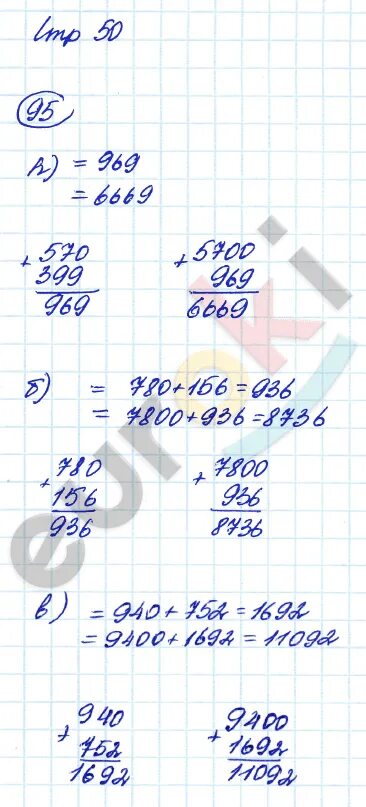 Стр 50
95
а) = 969
= 6669
+ 570
399
969
+ 5700
969
6669
б) = 780+156=936
= 7800+936=8736
+ 780
156
936
+ 7800
936
8736
в) = 940+752=1692
= 9400+1692=11092
+ 940
752
1692
+ 9400
1692
11092
euroki